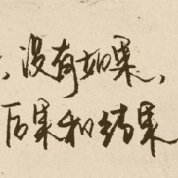 ，没有如果，
后果和结果